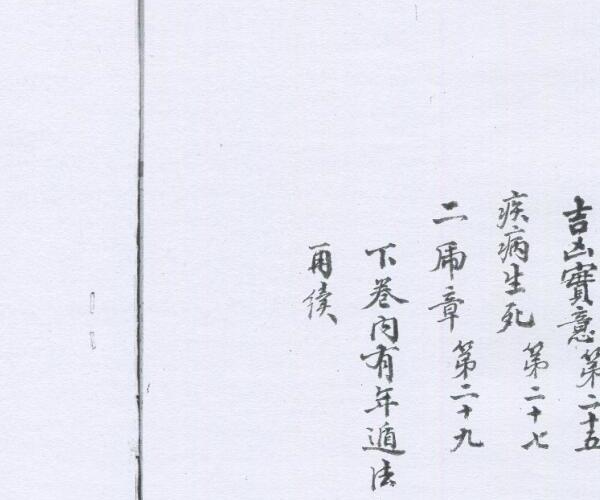 吉凶實意第二十五
疾病生死第二十七
二虎章第二十九
下卷内有年遁法
再续